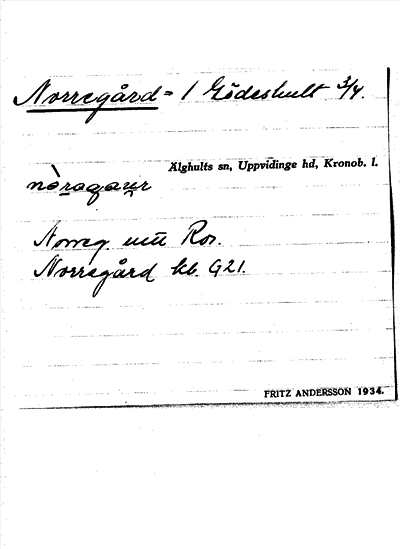 Norregård = 1 Gödeshult 3/4.
Älghults sn, Uppvidinge hd, Kronob. l.
nòragaɳɳ
Norreg. Ros.
Norregård kb. G21.
FRITZ ANDERSSON 1934.